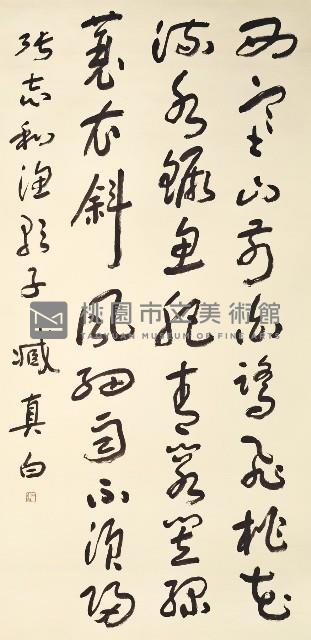 西塞山前白鷺飛桃花
流水鱖魚肥青箬笠綠
蓑衣斜風細雨不須歸
張志和漁歌子 臧真白
桃園市立美術館
TAOYUAN MUSEUM OF FINE ARTS